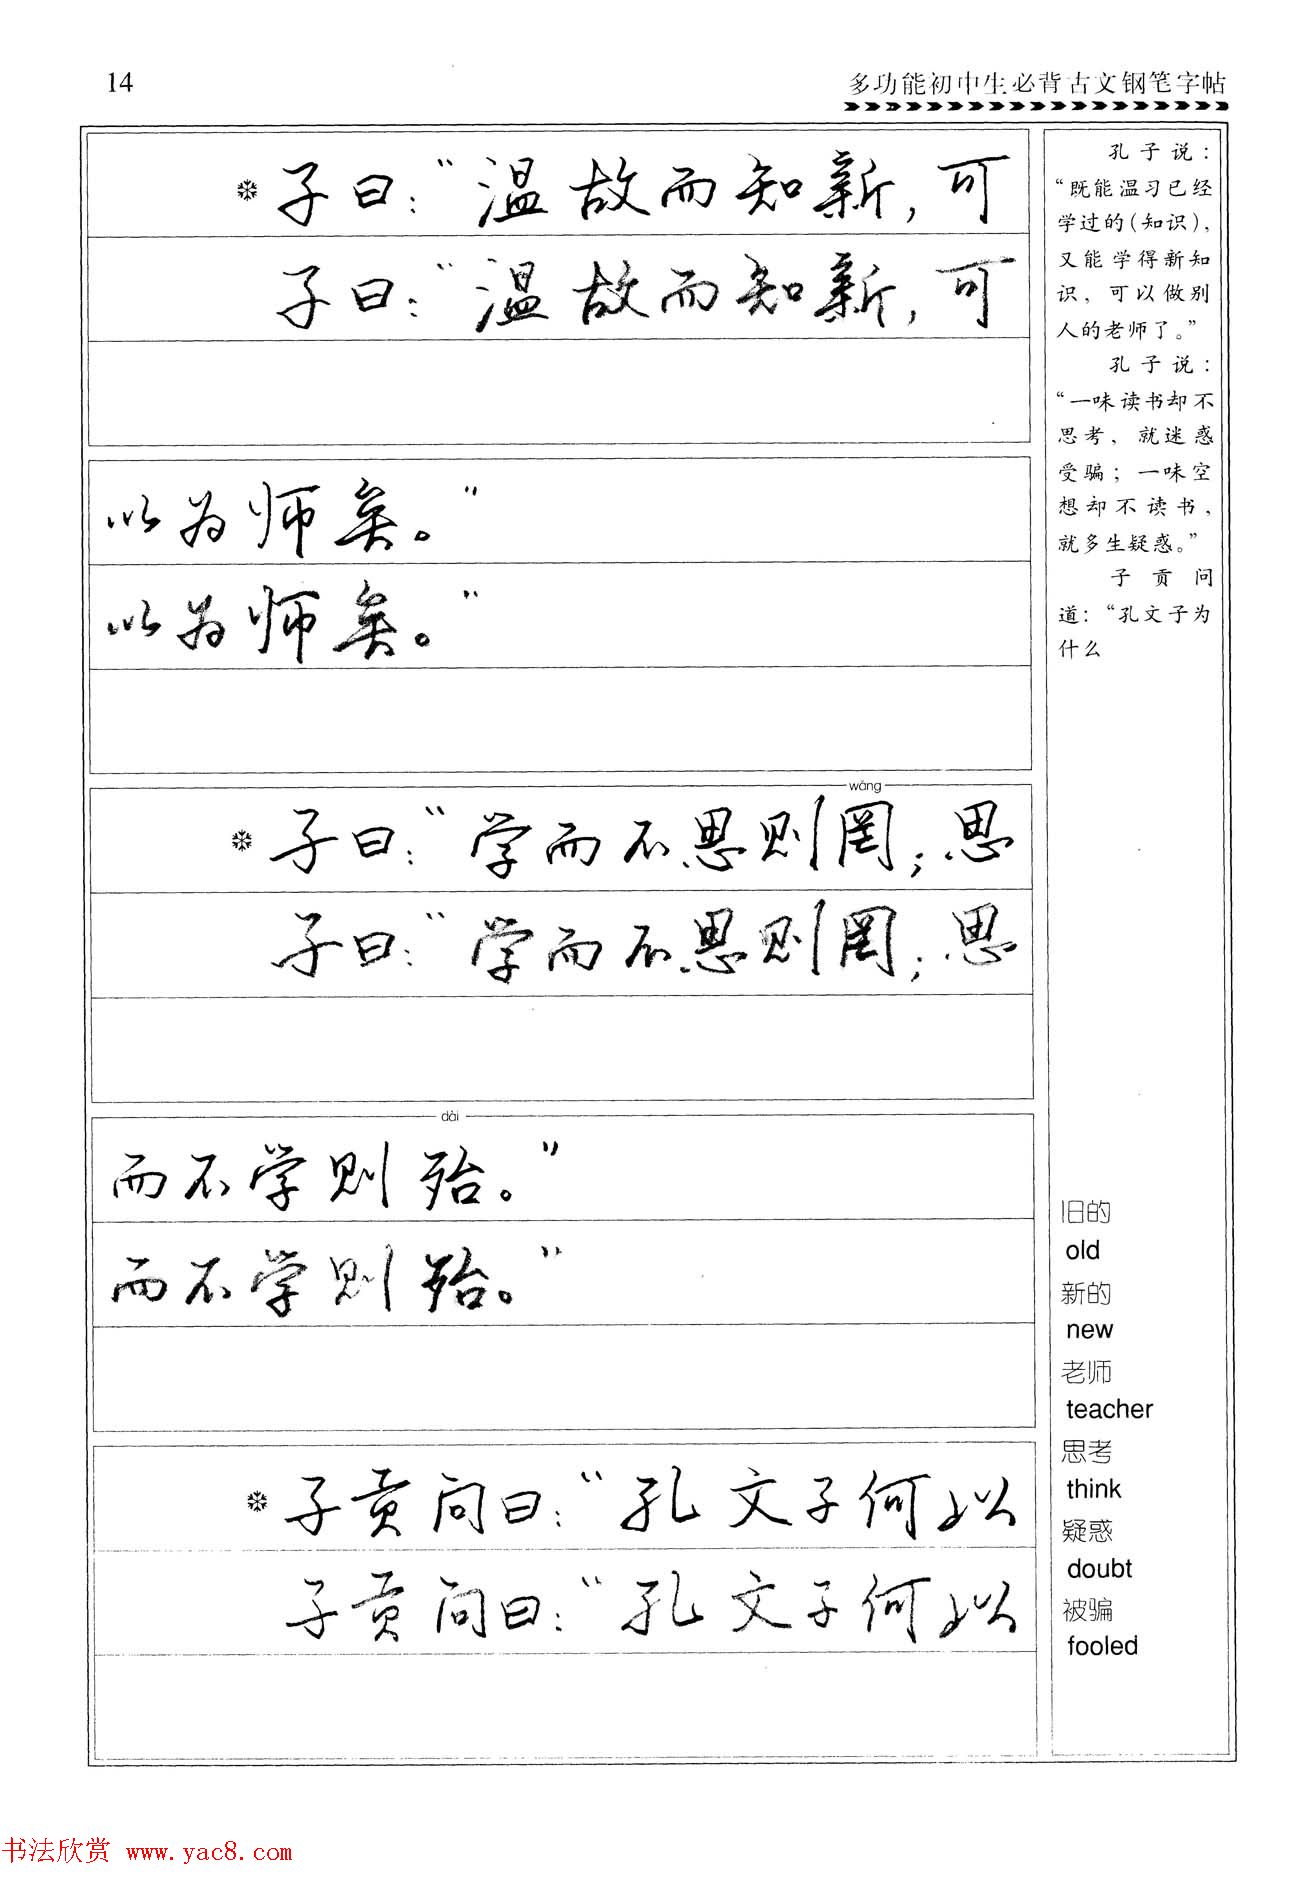 14
多功能初中生必背古文钢笔字帖
子曰：“温故而知新，可
子曰：“温故而知新，可
以为师矣。”
以为师矣。”
wǎng
子曰：“学而不思则罔；思
子曰：“学而不思则罔；思
dài
而不学则殆。”
而不学则殆。”
子贡问曰：“孔文子何以
子贡问曰：“孔文子何以
孔子说：
“既能温习已经
学过的（知识），
又能学得新知
识，可以做别
人的老师了。”
孔子说：
“一味读书却不
思考，就迷惑
受骗；一味空
想却不读书，
就多生疑惑。”
子贡问
道：“孔文子为
什么
旧的
old
新的
new
老师
teacher
思考
think
疑惑
doubt
被骗
fooled
书法欣赏 www.yac8.com